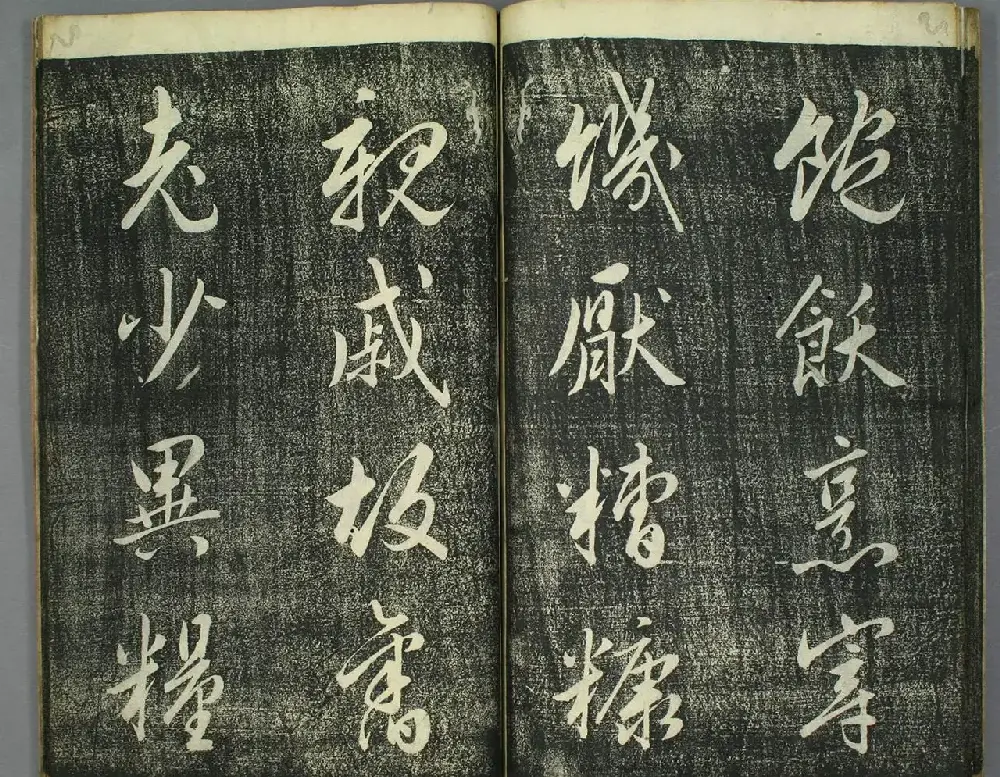 飽飫烹宰
饑厭糟糠
親戚故舊
老少異糧